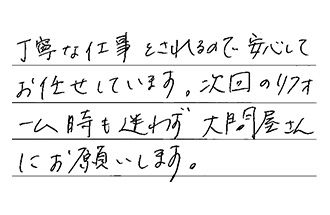 丁寧な仕事をされるので安心して
お任せしています。次回のリフォ
ーム時も迷わず大問屋さん
にお願いします。